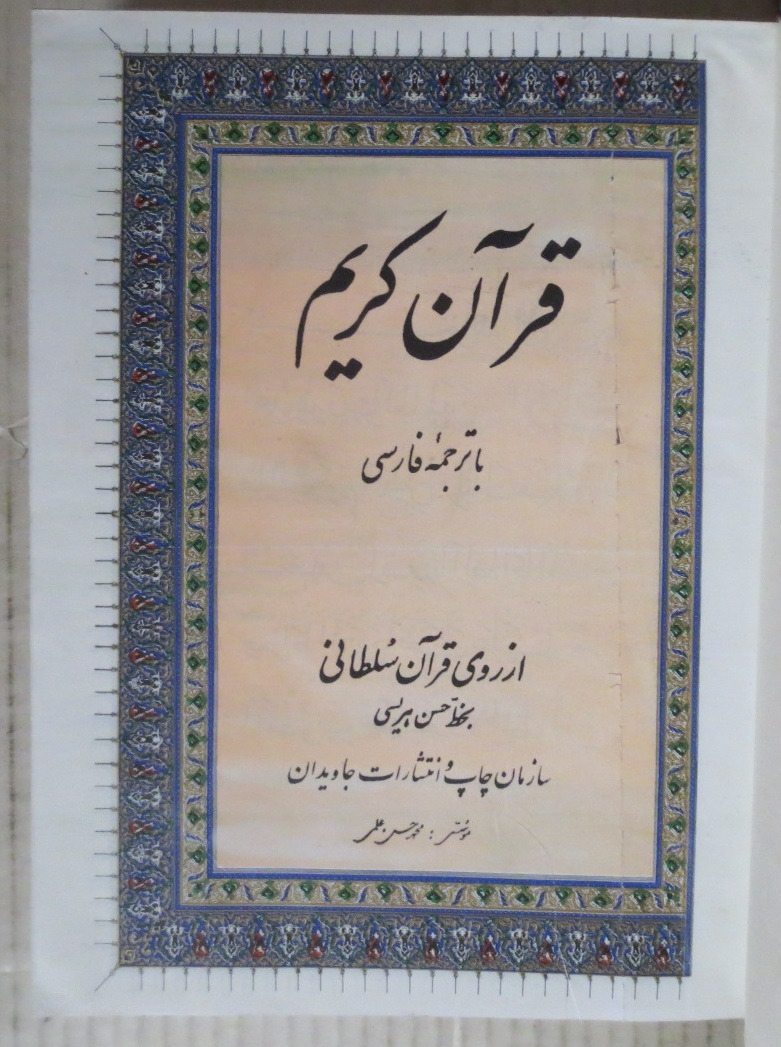 قرآن کریم
با ترجمهٔ فارسی
از روی قرآن سُلطانی
بخطّ حسن هریسی
سازمان چاپ و انتشارات جاویدان
مؤسّس : محمد حسن علمی